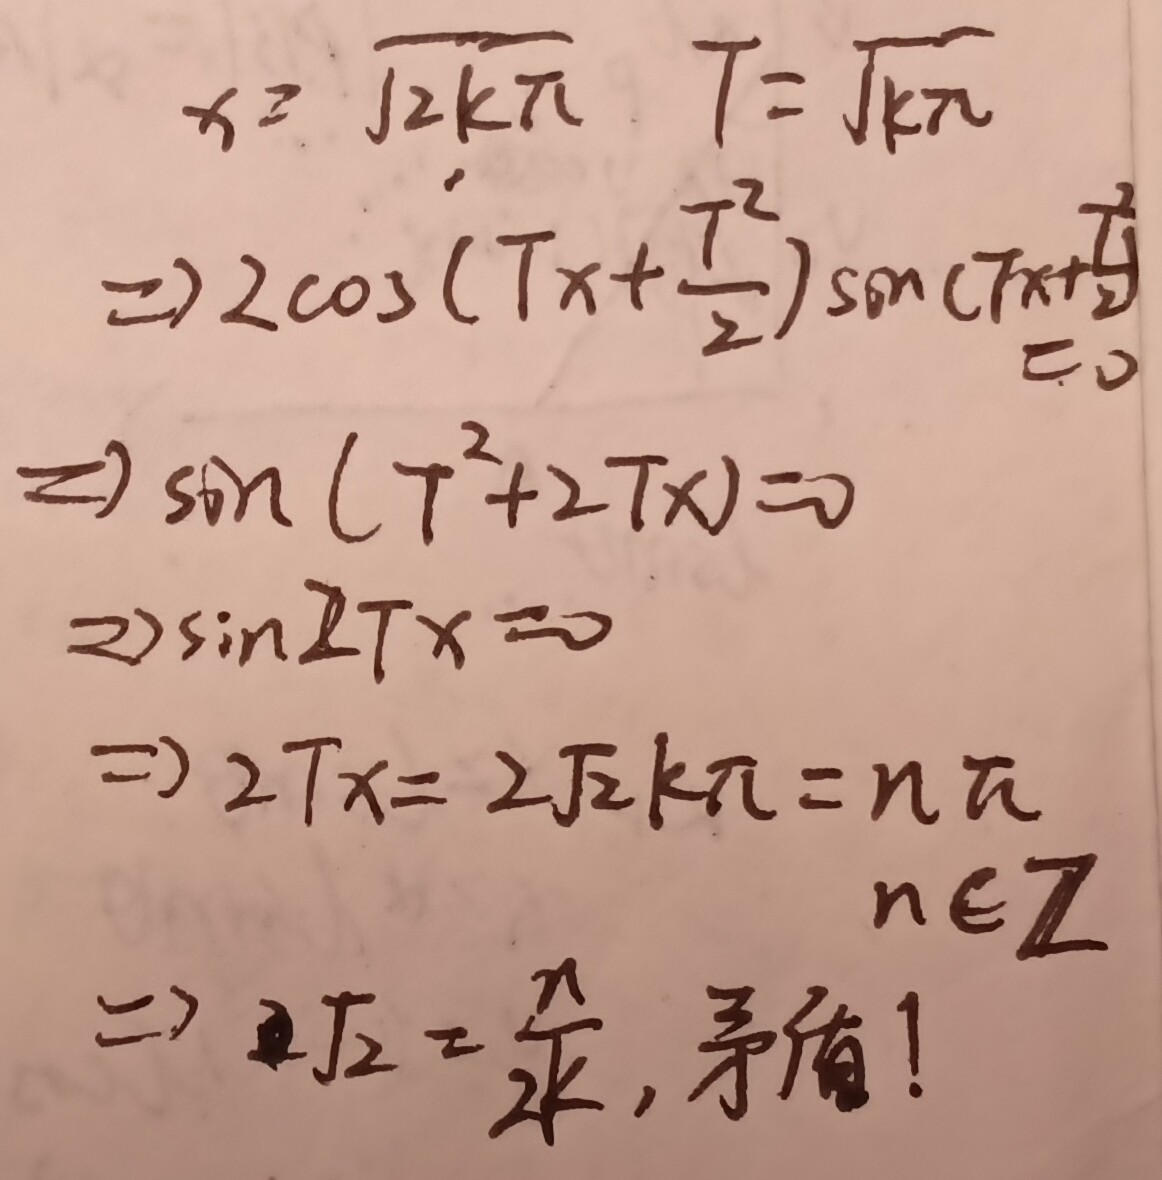 x = √2kπ T = √kπ
⇒ 2cos(Tx + T²/2) sin(Tx + T²/2) = 0
⇒ sin(T² + 2Tx) = 0
⇒ sin2Tx = 0
⇒ 2Tx = 2√2kπ = nπ
n ∈ ℤ
⇒ √2 = n/2k, 矛盾!